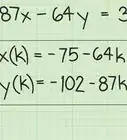 87x - 64y = 3
x(k) = -75 - 64k
y(k) = -102 - 87k